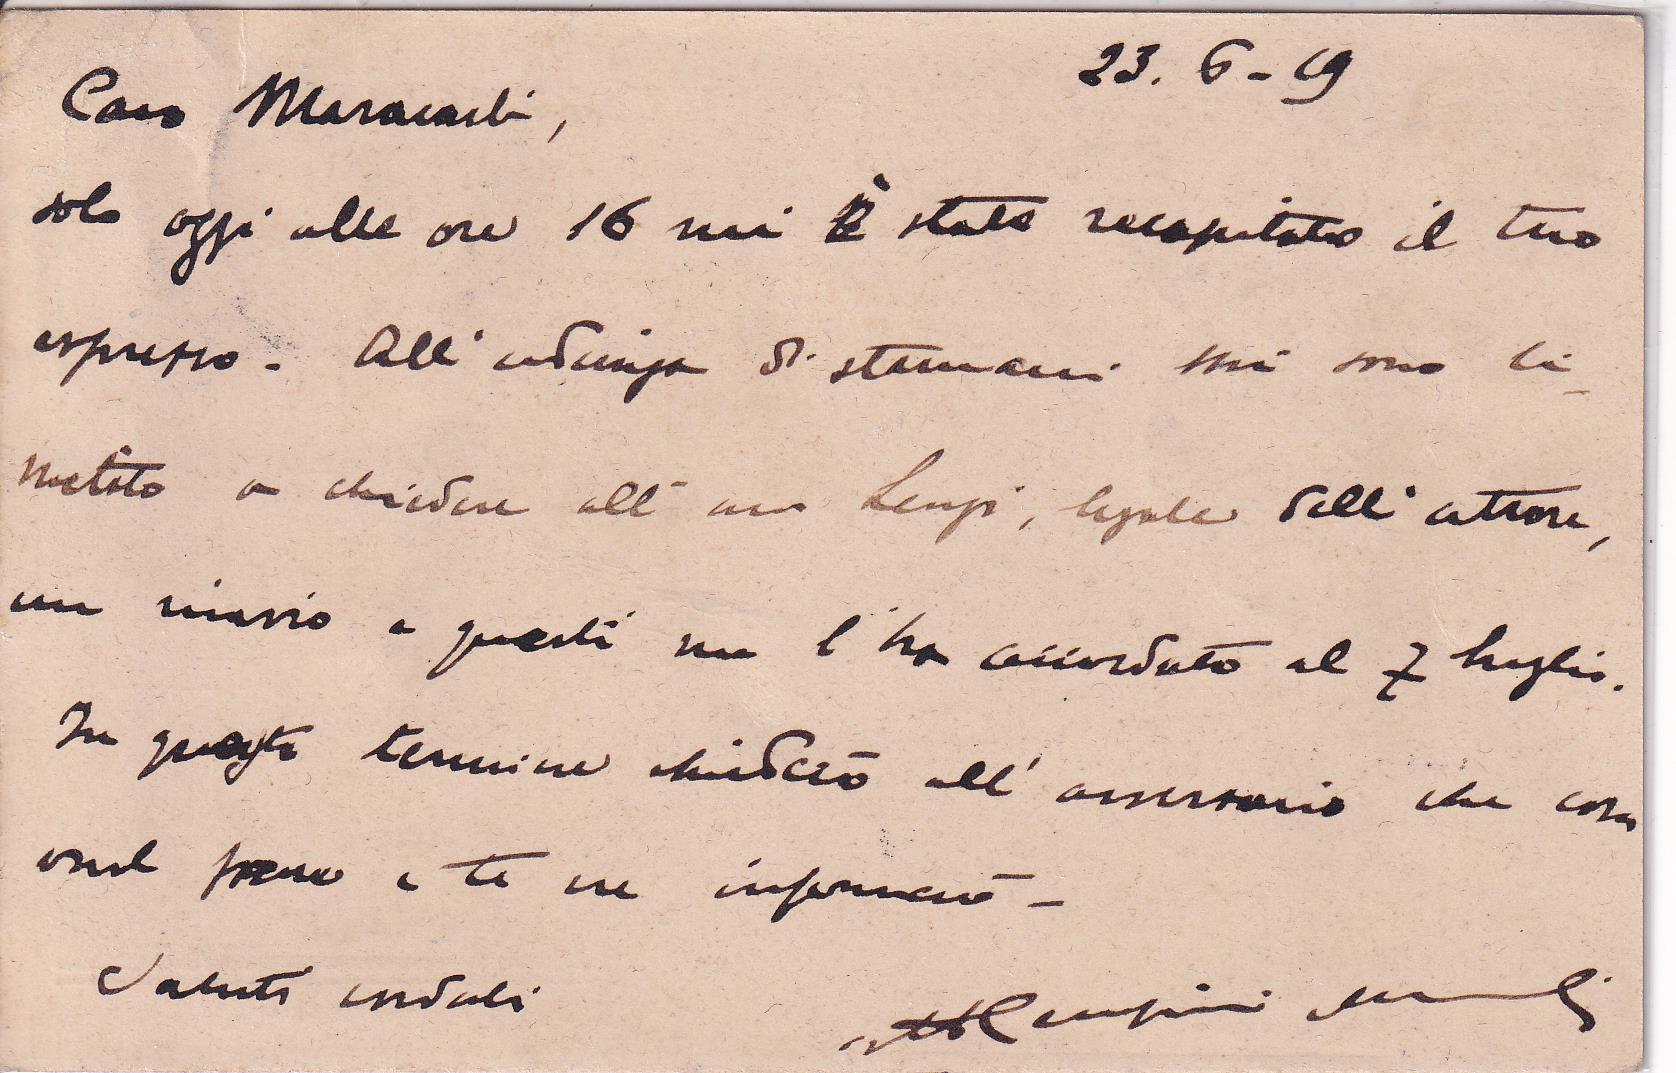 23. 6 - 19
Caro
solo oggi alle ore 16 mi è stato recapitato il tuo
espresso - All'udienza di stamani mi sono li-
mitato a chiedere all'avv Lenzi, legale dell'attore,
un rinvio e questi me l'ha accordato al 7 luglio.
In questo termine chiederò all'avversario che cosa
vuol fare e te ne informerò -
Saluti cordiali